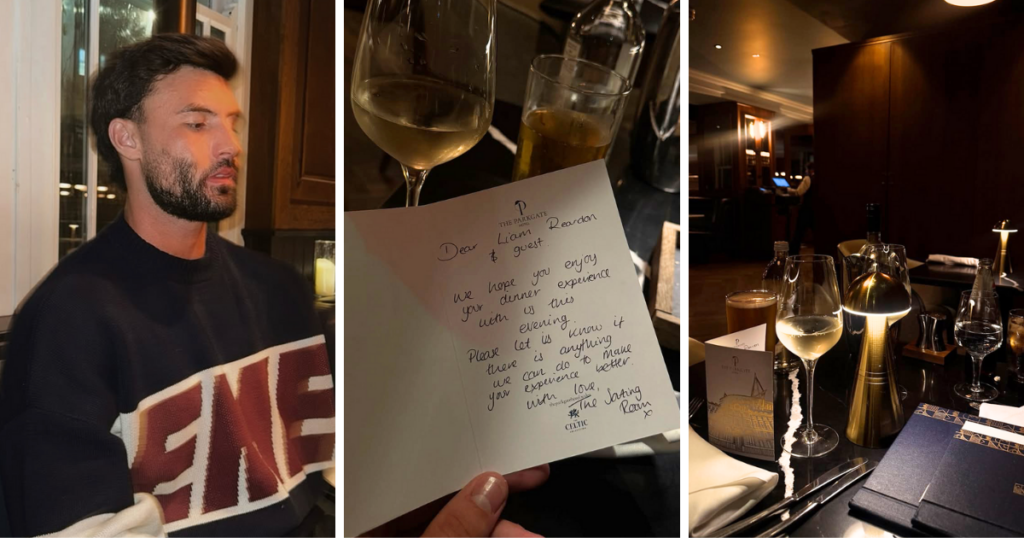 ENE
THE PARKGATE
HOTEL
Dear Liam Reardon
& guest
we hope you enjoy
your dinner experience
with us this
evening.
Please let us know if
there is anything
we can do to make
your experience better.
with love,
The Sorting
Room xo
CELTIC